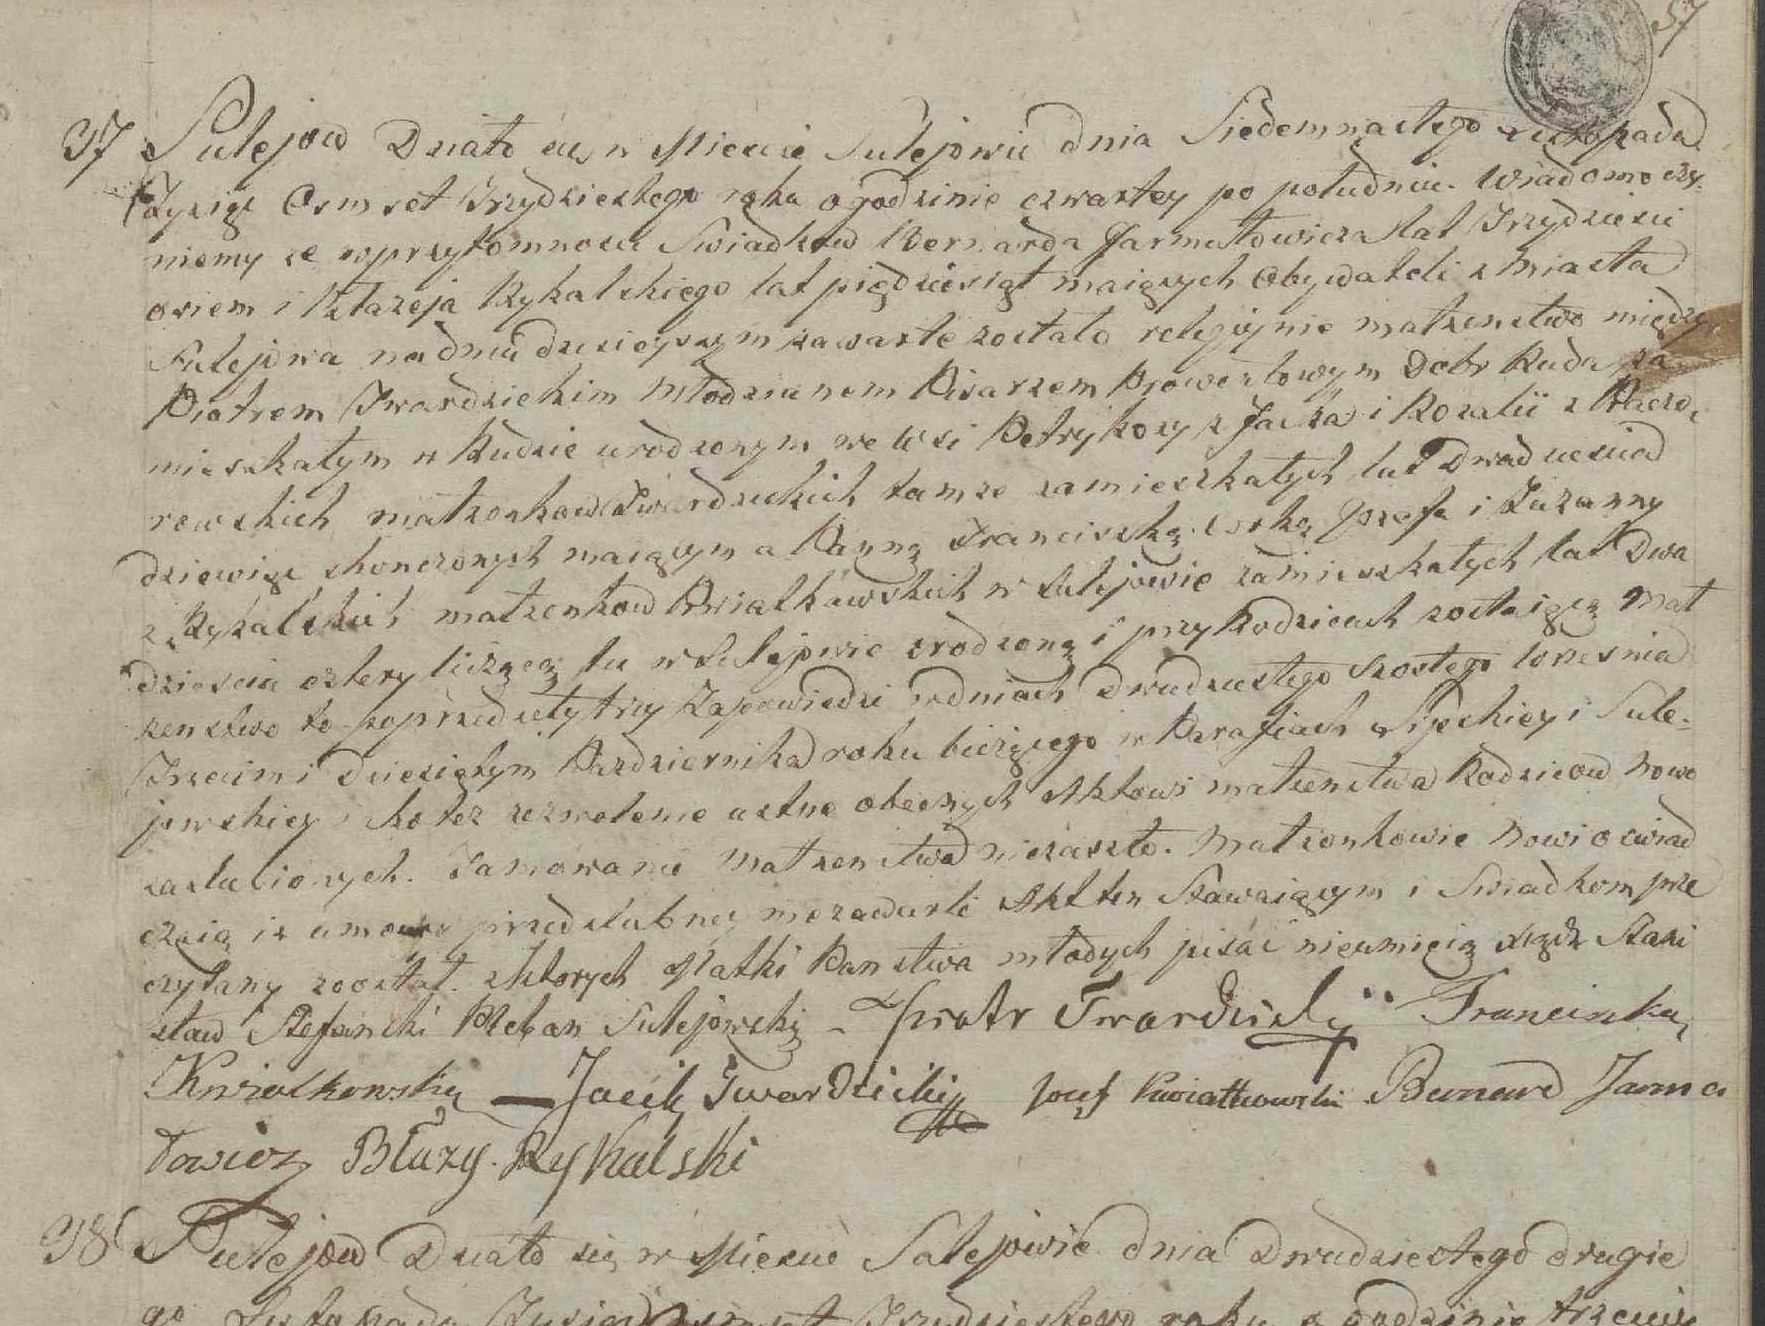 57
37 Sulejow Działo się w Mieście Sulejowie dnia Siedemnastego Listopada
Tysiąc Osmset Trzydziestego roku o godzinie czwartey po południu. Wiadomo czy-
niemy że wprzytomności Swiadkow Bernarda Jarmułowicza lat Trzydzieści
osiem i Błażeja Rykalskiego lat piędziesiąt maiących Obywateli z Miasta
Sulejowa na dniu dzisieyszym zawarte zostało religijnie małżenstwo między
Piotrem Twardzickim Młodzianem Pisarzem Prowentowym Dobr Ruda za-
mieszkałym w Rudzie urodzonym we Wsi Petrykozy z Jacka i Rozalii z
rowskich małżonkow Twardzickich tamże zamieszkałych lat Dwadzieścia
dziewięć skonczonych maiącym a Panną Franciszką corką Jozefa i Zuzanny
z Rykalskich małżonkow Kwiatkowskich w Sulejowie zamieszkałych lat Dwa
dzieścia cztery liczącą tu w Sulejowie urodzoną i przy Rodzicach zostaiącą Mał
żenstwo to poprzedziły trzy Zapowiedzi w dniach Dwudziestego Szostego Wrzesnia
Trzecim i Dziesiątym Pazdziernika roku bieżącego w Parafiach i Sule-
jowskiey iako też zezwolenie ustne obecnych Aktowi małżenstwa Rodzicow Nowo
zaslubionych. Tamowanie Małżenstwa niezaszło. Małżonkowie Nowi oswiad
czaią iż umowy przedslubney niezawarli Akt ten Stawaiącym i Swiadkom prze
czytany został. z ktorych Matki Panstwa młodych pisać nieumieią Xiądz Stani
sław Stefanski Pleban Sulejowski – Piotr Twardzicki Franciszka
Kwiatkowska — Jacek Twardzicki Jozef Kwiatkowski Bernard Jarmu
łowicz Błazy Rykalski
38 Sulejow Działo się w Mieście Sulejowie dnia Dwudziestego drugie
go Listopada Tysiąc Osmset Trzydziestego roku o godzinie trzeciey